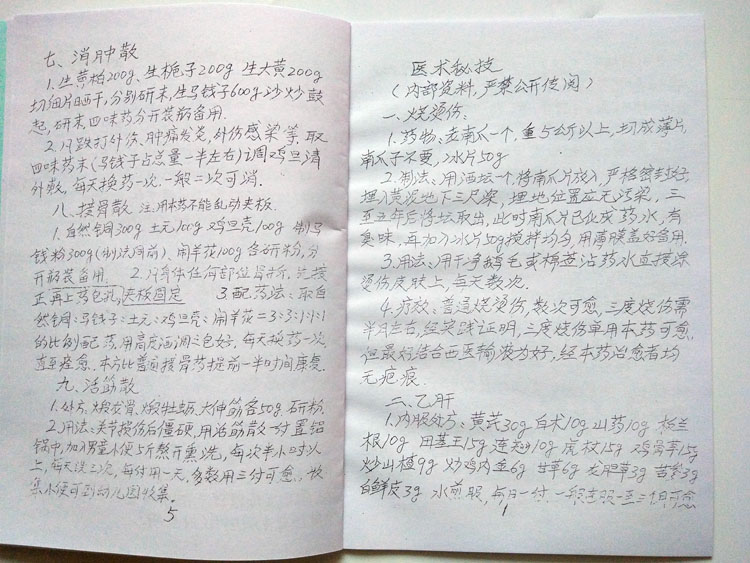 七、消肿散
1.生黄柏200g、生栀子200g 生大黄200g
切细片晒干,分别研末,生马钱子600g砂炒鼓
起,研末,四味药分开装瓶备用.
2.凡跌打外伤、肿痛发炎,外伤感染等.取
四味药末(马钱子占总量一半左右)调鸡旦清
外敷,每天换药一次,一般二次可消.
八、接骨散 注:用本药不能乱动夹板.
1.自然铜300g 土元100g 鸡旦壳100g 制马
钱粉300g(制法同前)、闹羊花100g 各研粉,分
开瓶装备用. 2.凡身体任何部位骨折,先接
正再上药包扎,夹板固定 3.配药法:取自
然铜:马钱子:土元:鸡旦壳:闹羊花=3:3:1:1:1
的比例配药,用高度酒调之包好,每天换药一次,
直至痊愈.本方比普通接骨药提前一半时间康复.
九、活筋散
1.处方,煅龙骨,煅牡蛎,大伸筋各50g研粉.
2.用法:关节损伤后僵硬,用活筋散一付置铝
锅中,加入男童小便5斤熬开熏洗,每次半小时以
上,每天洗三次,每付用一天,多数用三付可愈.收
集小便可到幼儿园收集.
5
医术秘技
(内部资料,严禁公开传阅)
一、烧烫伤:
1.药物:老南瓜一个,重5公斤以上,切成薄片,
南瓜子不要,冰片50g
2.制法:用酒坛一个,将南瓜片放入,严格密封好,
埋入黄泥地下三尺深,埋地位置应无污染,三
至五年后将坛取出,此时南瓜片已化成药水,有
臭味,再加入冰片50g搅拌均匀,用薄膜盖好备用.
3.用法:用干净鹅毛或棉签沾药水直接涂
烫伤皮肤上,每天数次.
4.疗效:普通烧烫伤,数次可愈,三度烧伤需
半月左右,经实践证明,三度烧伤单用本药可愈,
但最好结合西医输液为好,经本药治愈者均
无疤痕.
二、乙肝
1.内服处方:黄芪30g 白术10g 山药10g 板兰
根10g 田基王15g 连翘10g 虎杖15g 鸡骨草15g
炒山楂9g 炒鸡内金6g 甘草6g 龙胆草3g 苦参3g
白鲜皮3g 水煎服,每日一付,一般连服一至三个月可愈
1